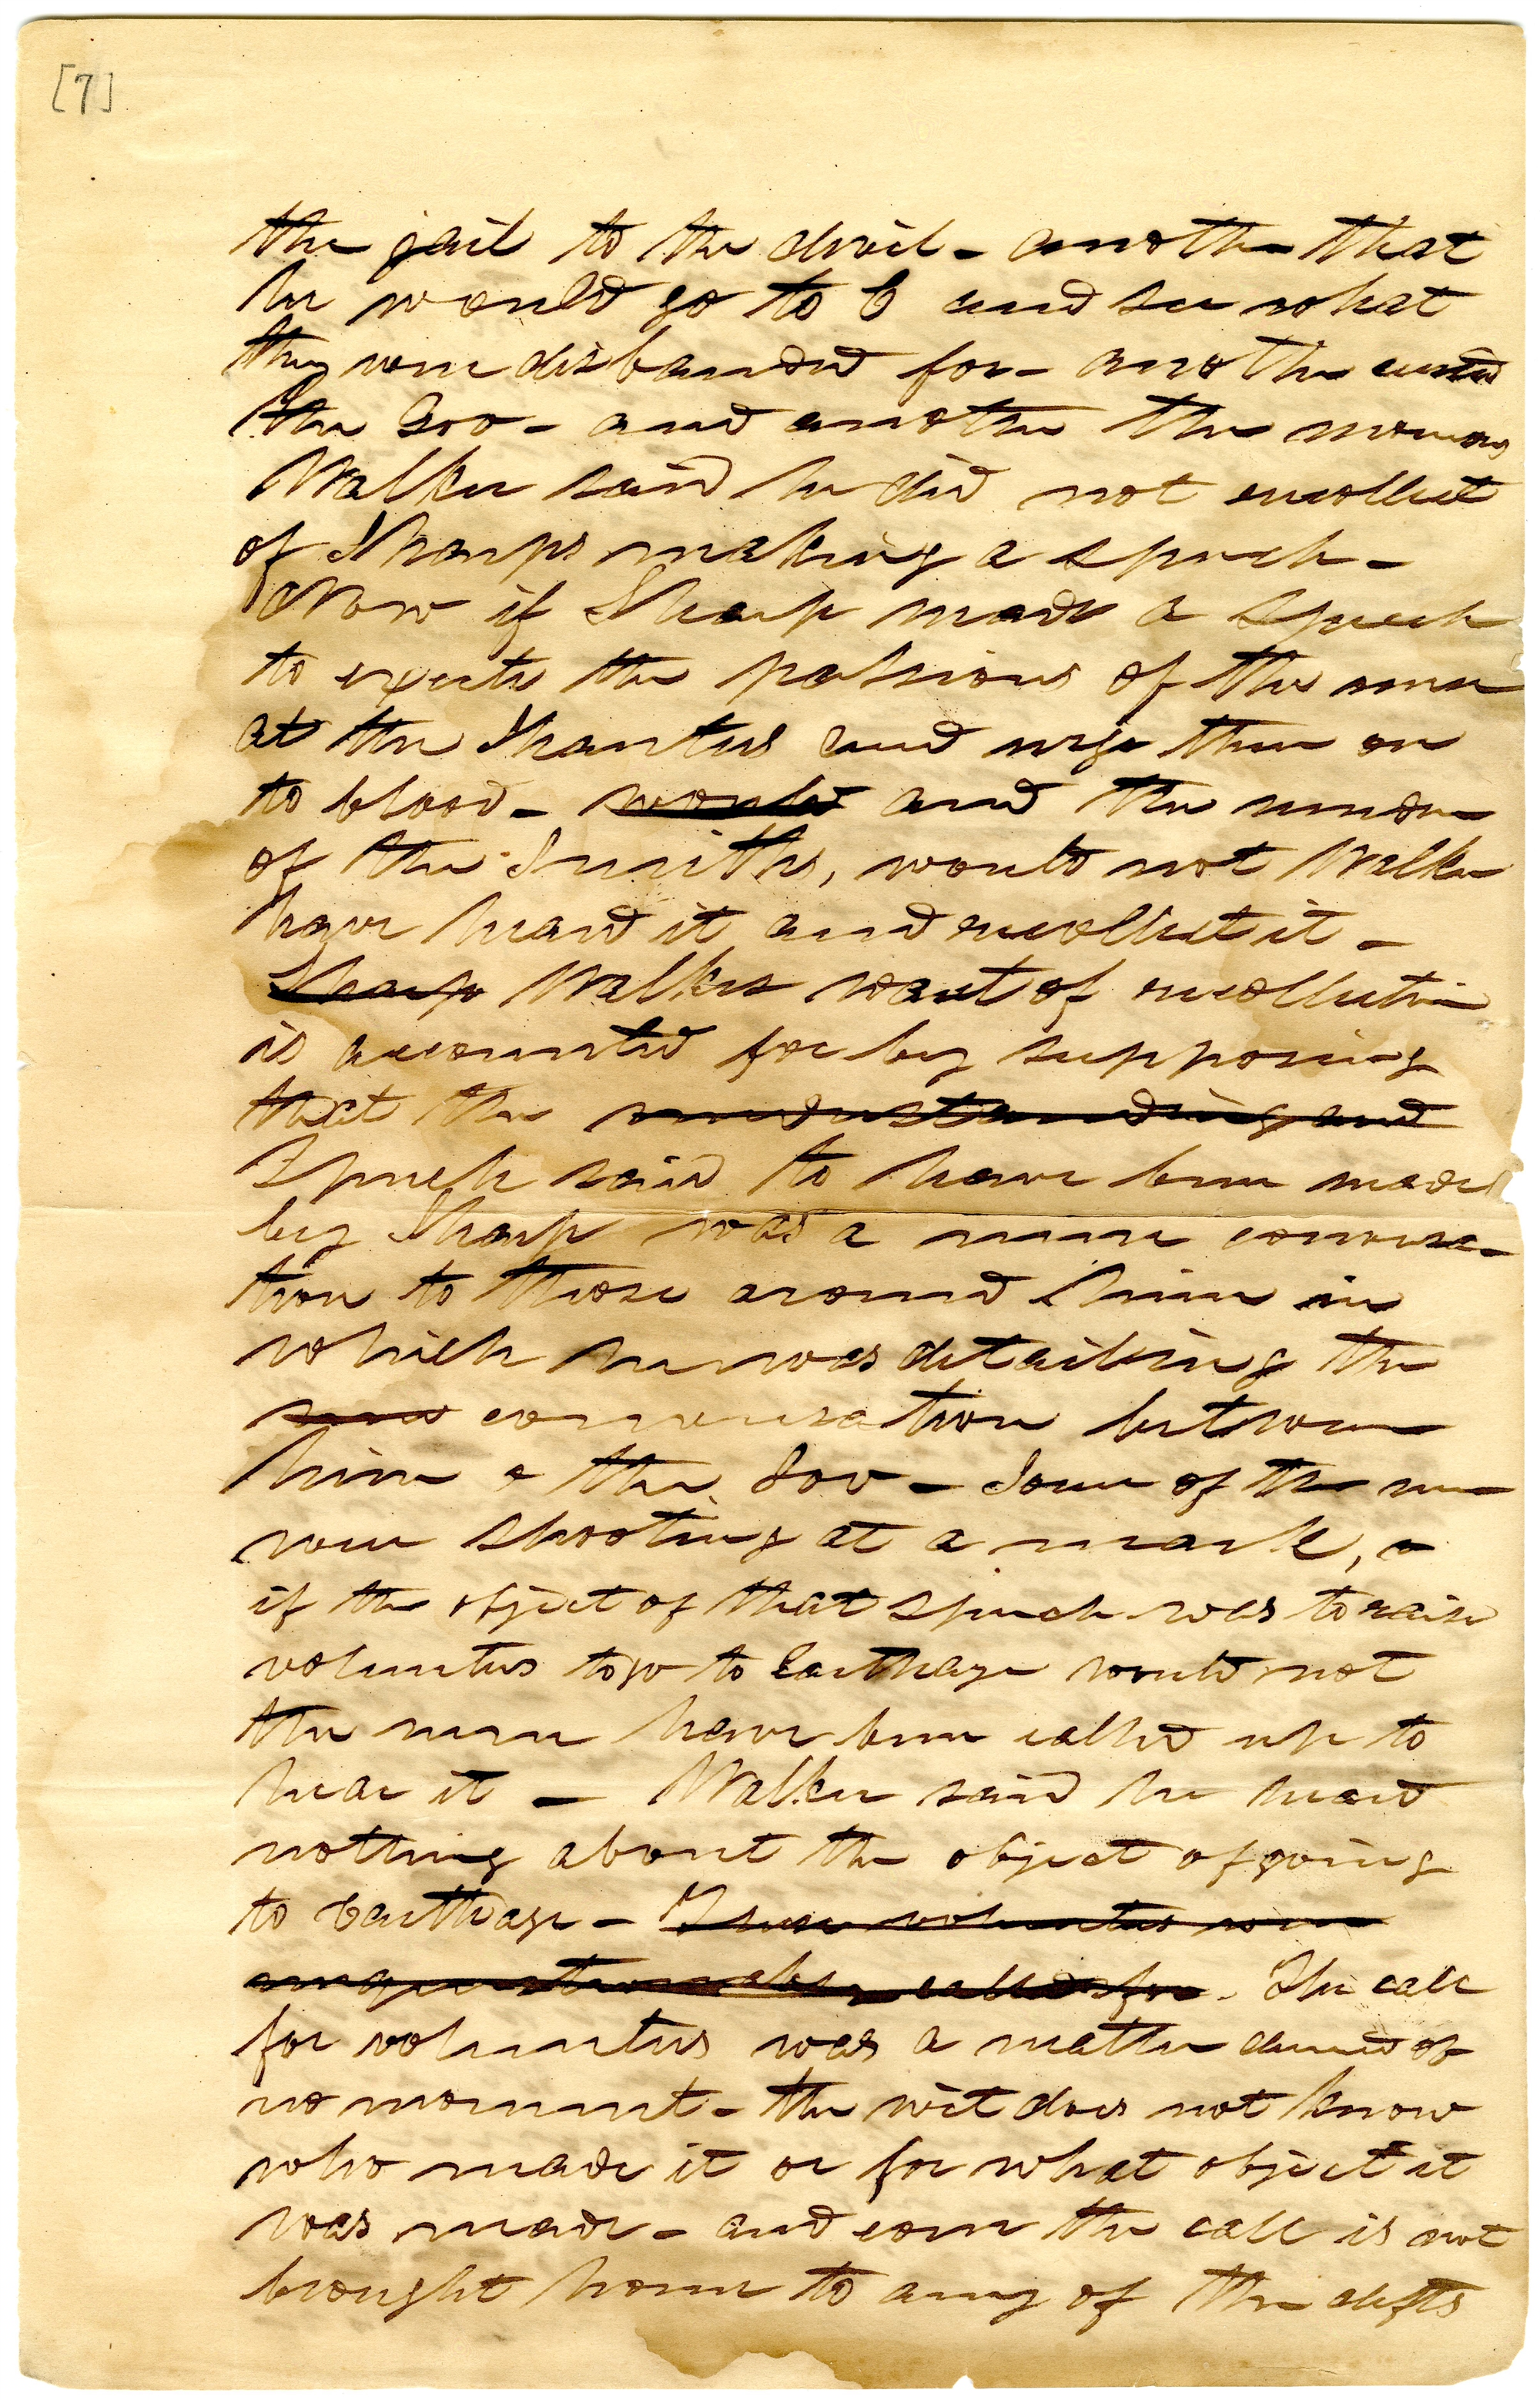 [7]
the jail to the devil - another that
he would go to C and see what
they were disbanded for - another cursed
the Gov - and another the mormons
Walker said he did not recollect
of Sharps making a speech -
Now if Sharp made a speech
to excite the passions of the men
at the Shanties and urge them on
to blood - would and the murder
of the Smiths, would not Walker
have heard it and recollect it -
Sharp Walkers want of recollection
is accounted for by supposing
that the understanding and
Speech said to have been made
by Sharp was a mere conversa-
tion to those around him in
which he was detailing the
conversation between
him & the Gov - Some of the men
were shooting at a mark, &
if the object of that speech was to raise
volunteers to go to Carthage would not
the men have been called up to
hear it - Walker said he heard
nothing about the object of going
to Carthage - These volunteers were
unquestionably called for - The call
for volunteers was a matter deemed of
no moment - the wit does not know
who made it or for what object it
was made - and even the call is not
brought home to any of the defts